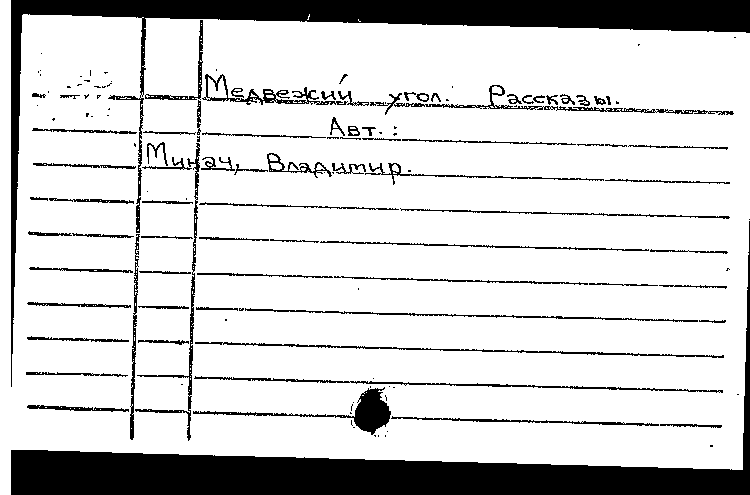 Медвежий угол. Рассказы.
Авт.:
Минач, Владимир.